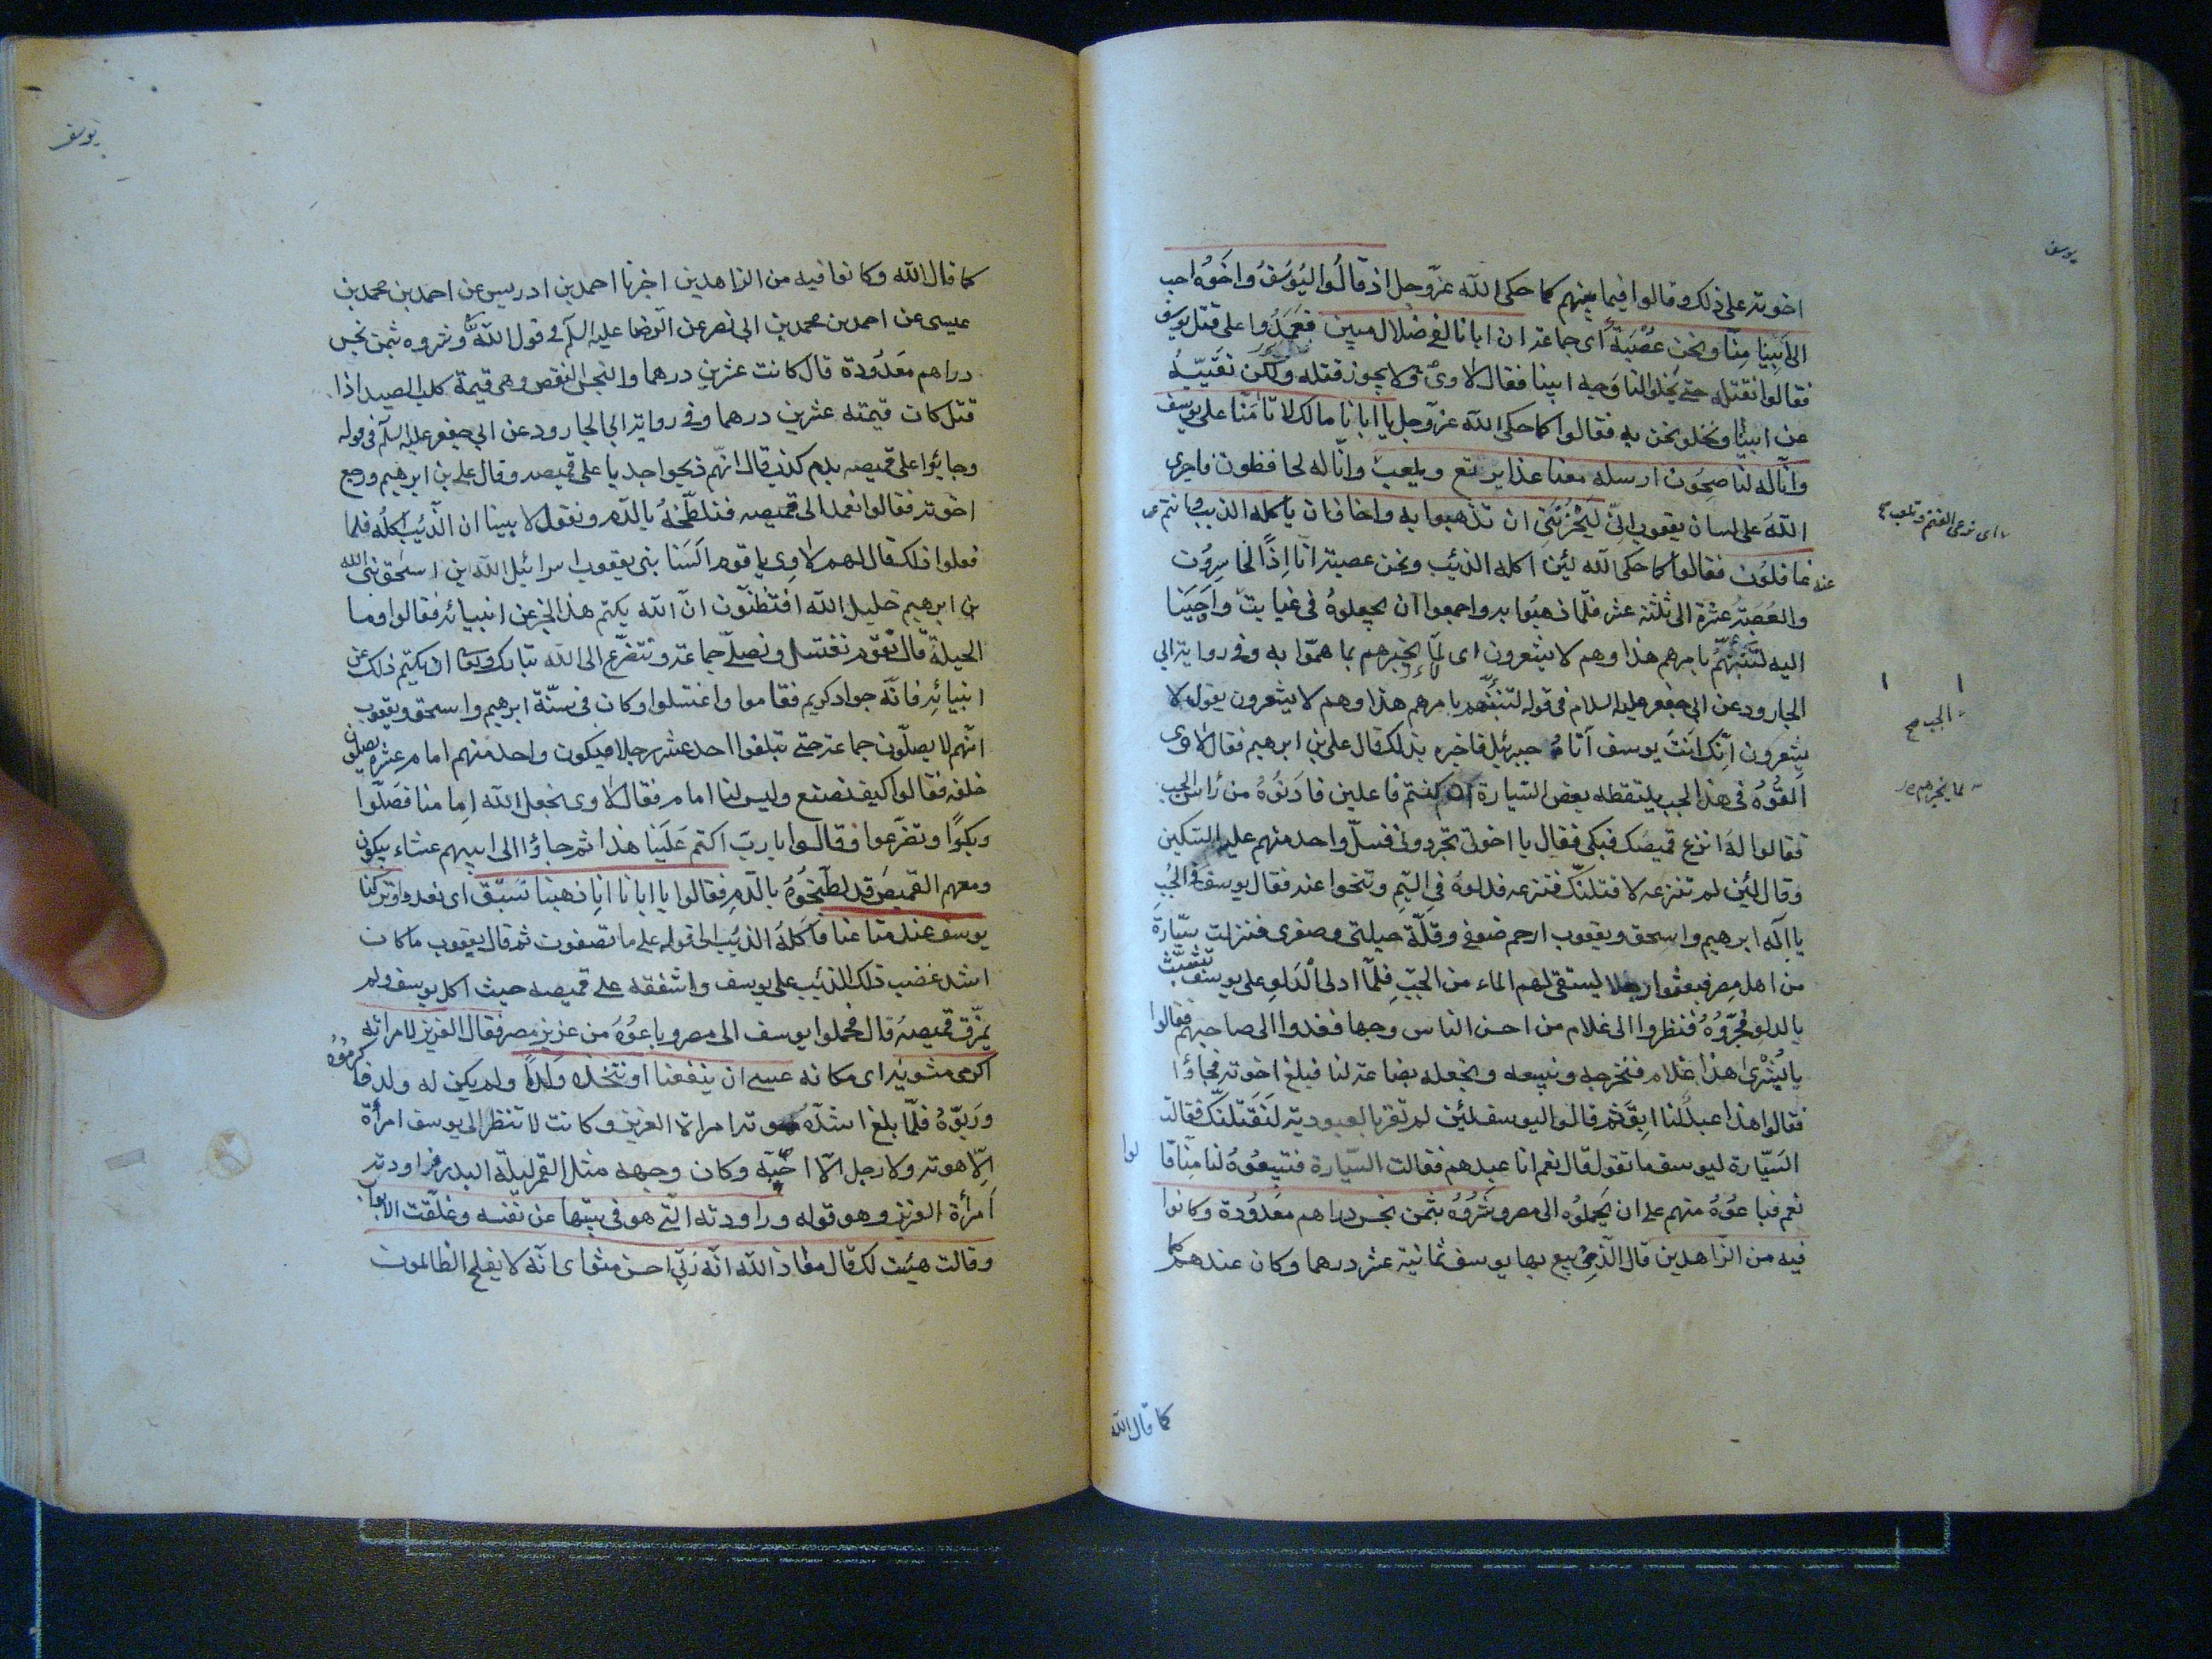 يوسف
اخوته على ذلك وقالوا فيما بينهم كما حكى الله عزّ وجل اذ قالُوا ليُوسُفُ واخَوُه احب
الى اَبينا مِنّا ونحن عُصْبَةٌ اى جماعة ان ابانا لفى ضلال مبين فَعَمَدُوا على قتل يوسف
فقالوا نقتله حتى يخلوا لنا وَجه ابينا فقال لاوى ولا يجوز قتله ولكن نغيّبهُ
عن ابينا ونخلو نحن به فقالوا كما حكى الله عزّ وجل يا ابانا مالك لا تأمَنّا على يوسف
وانّا له لناصِحُون ارسله معنا غدا يرتع ويلعب وانّا له لحافظون فاجرى
اللهَ على لسان يعقوب انّى لَيَحْزُنُنِى ان تذهبوا به واخاف ان ياكله الذيب وانتم
اى نرعى الغنم ونلعب صح
عنه غافلُون فقالوا كما حكى الله لئِن اكله الذئيب ونحن عصبة انّا اِذًا لخاسِرُون
والعُصَبَةُ عشرة الى ثلثة عشر فلمّا ذهبُوا به واجمعوا ان يجعلوهُ فى غيابت وَاَوحَينا
اليه لتُنَبّئَنّهُم بامرهم هذا وهم لا يشعرون اى لما يخبرهم بما همّوا به وفى رواية ابى
الجب صح
الجارود عن ابى جعفر عليه السلام فى قوله لتنبئنّهم بامرهم هذا وهم لا يشعرون يقول لا
يشعرون انّك اَنتَ يوسف اَتاهُ جبرئيل فاخبره بذلك قال على بن ابرهيم فقال لاوى
اَلقُوُهُ فى هذا الجب يلتقطه بعض السّيارة ان كنتم فاعلين فادَنَوهُ من رَأس الجب
لما يخبرهم
فقالوا لهَ انزع قميصَك فبكى فقال يا اخوتى تجردونى فسلّ واحد منهم عليه السّكين
وقال لئِن لم تنزعه لاقتلنّك فنزعه فدلوهُ فى اليَمِ وتنحوا عنه فقال يوسف فى الجُب
يا اِلَه ابرهيم واسحق ويعقوب ارحم ضعفى وقلّة حيلتى وصغرى فنزلت سيّارَة
من اهل مِصر فبعثوا رجلا ليستقى لهم الماء من الجبّ فلمّا ادلى الدَلوِ على يوسف تشبّث
بالدلو فجَرّوُهُ فنظروا الى غلام من احسن الناس وجها فعدوا الى صاحبهم فقالوا
يا بُشْرى هذا غلام فنخرجه ونبيعه ونجعله بضاعة لنا فبلغ اخوته فجاؤا
فقالوا هذا عبدٌ لنا ابقَ ثم قالوا ليوسف لئِن لم تقر بالعبودية لَنَقْتلنّك فقالت
السَيّارة ليوسف ما تقول قال نعم انا عبدهم فقالت السّيارة فتبيعُوهُ لنا مِنّا قا
لوا
نعم فباعُوُهُ منهم على ان يَحملوُه الى مصر وشَرَوُهُ بثمن بخس دراهم معدُودة وكانوا
فيه من الزّاهدين قال الّذى بيع بها يوسف ثمانية عشر درهما وكان عندهم كما
كما قال الله
يوسف
كما قال الله وكانوا فيه من الزاهدين اخبرنا احمد بن ادريس عن احمد بن محمد بن
عيسى عن احمد بن محمد بن ابى نصر عن الرّضا عليه السلام فى قول الله وشروه بثمن بخس
دراهم مَعدُودة قال كانت عشرين درهما والبخس النقص وهى قيمة كلب الصيد اذا
قتل كان قيمته عشرين درهما وفى رواية ابى الجارود عن ابى جعفر عليه السلام فى قوله
وجاؤا على قميصه بدم كذب قال انّهم ذبحوا جديا على قميصه وقال على بن ابرهيم ورجع
اخوته فقالوا نعمد الى قميصه فنلطّخهُ بالدّم ونقول لابينا ان الذّئِب اكله فلما
فعلوا ذلك قال لهم لاوى يا قوم اَلَسنا بنى يعقوب اسرائيل الله بن اسحق نبى الله
بن ابرهيم خليل الله افتظنّون انّ الله يكتم هذا الخبر عن انبيائه فقالوا وما
الحيلة قال نقوم نغتسل ونصلّى جماعة ونتضرّع الى الله تبارك وتعالى ان يكتم ذلك عن
انبيائِه فانّه جواد كريم فقاموا واغتسلوا وكان فى سنّة ابرهيم واسحق ويعقوب
انّهم لا يصلّون جماعة حتى تبلغوا احد عشر رجلا فيكون واحد منهم امام عشره يصلون
خلفه فقالوا كيف نصنع وليس لنا امام فقال لاوى نجعل الله اِمامنا فصَلّوا
وبكوًا وتضرّعوا وقالوا يا ربّ اكتم عَلَينا هذا ثم جاؤا الى ابيهم عشاء يبكون
ومعهم القميصَ قد لطَّخُوُهُ بالدّمِ فقالوا يا ابانا انِا ذهبنا نَستَبق اى نعدوا وتركنا
يوسف عند متاعنا فاكَلهُ الذئيب الى قوله على ما تصفون ثم قال يعقوب ما كان
اشد غضب ذلك الذئيب على يوسف واشفقه على قميصه حيث اكل يوسف ولم
يمزّق قميصهُ قال فحملوا يوسف الى مصر وباعوُهُ من عزيز مصر فقال العزيز لامراته
اكرمى مثويه اى مكانه عسى ان ينفعنا او نتّخذه ولَدًا ولم يكن له ولد فاكرمُوُهُ
ورَبّوُهُ فلمّا بلغ اشدّه هوته امراة العزيز وكانت لا تنظر الى يوسف امرأة
اِلّا هوته ولا رجل الّا احبّه وكان وجهه مثل القمر ليلة البدر فراودته
اَمرأة العزيز وهو قوله وراودته الّتى هو فى بيتها عن نفسه وغلّقت الابواب
وقالت هيئت لك قال معاذ الله انّه رَبّى احسن مثواى انّه لا يفلح الظالمون